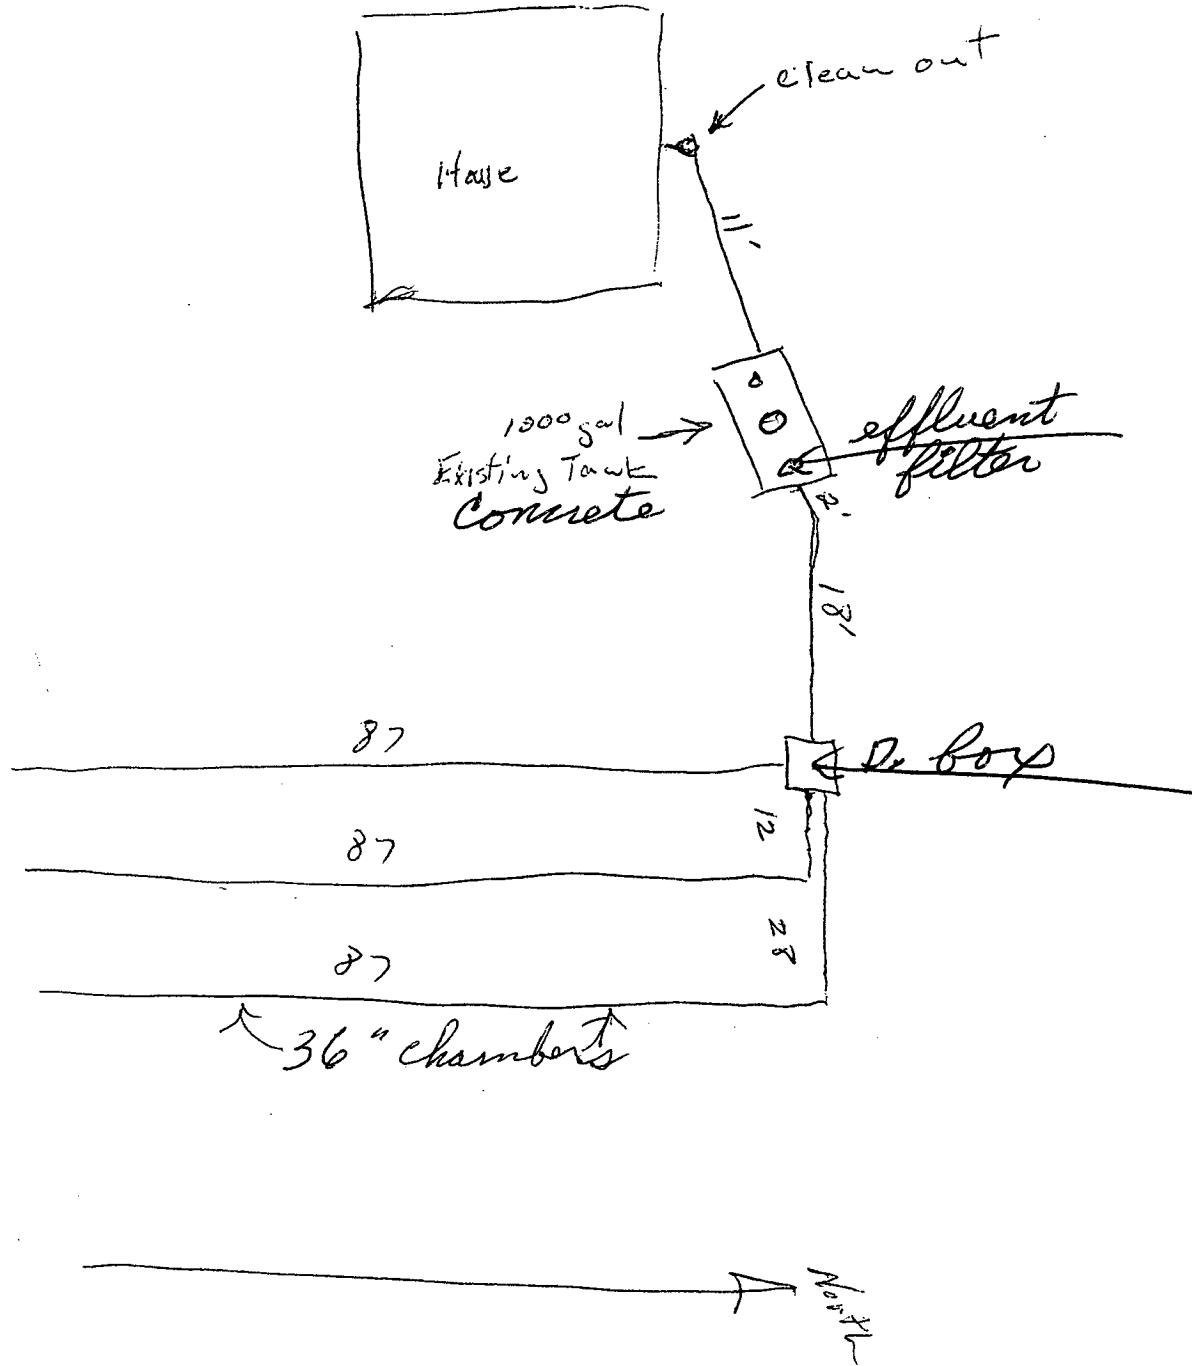 clean out
House
11'
1000 gal
Existing Tank
Concrete
effluent
filter
2'
18'
87
D. box
12
87
28
87
36" chambers
North